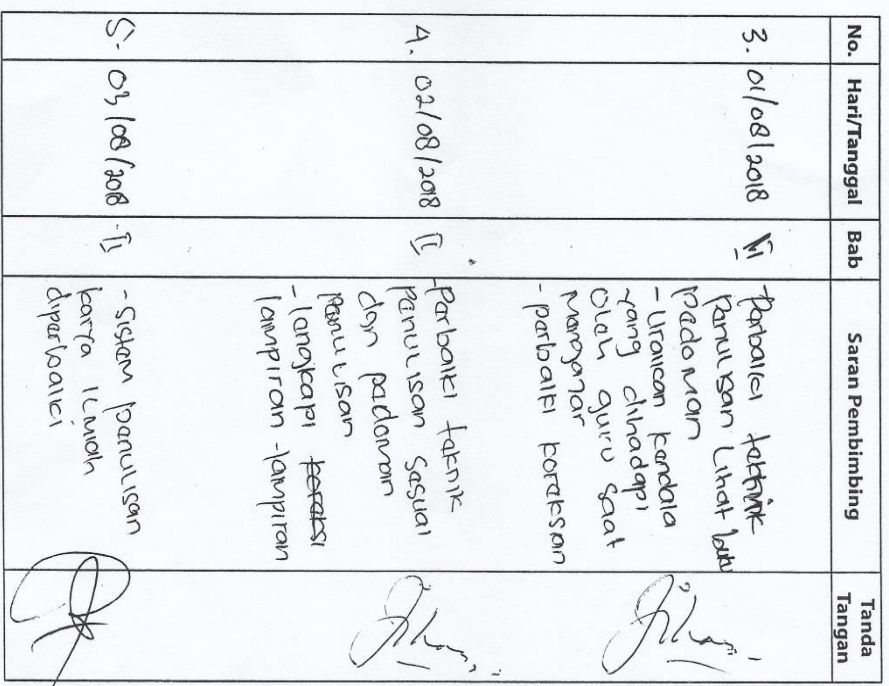 No. Hari/Tanggal Bab Saran Pembimbing Tanda Tangan
3. 01/08/2018 - perbaiki tekhnik
penulisan lihat buku
pedoman
- Uraikan kendala
yang dihadapi
oleh guru saat
mengajar
- perbaiki koreksian
4. 02/08/2018 II - Perbaiki teknik
penulisan sesuai
dgn pedoman
penulisan
- lengkapi koreksi
lampiran-lampiran
5. 03/08/2018 II - Sistem penulisan
karya ilmiah
diperbaiki